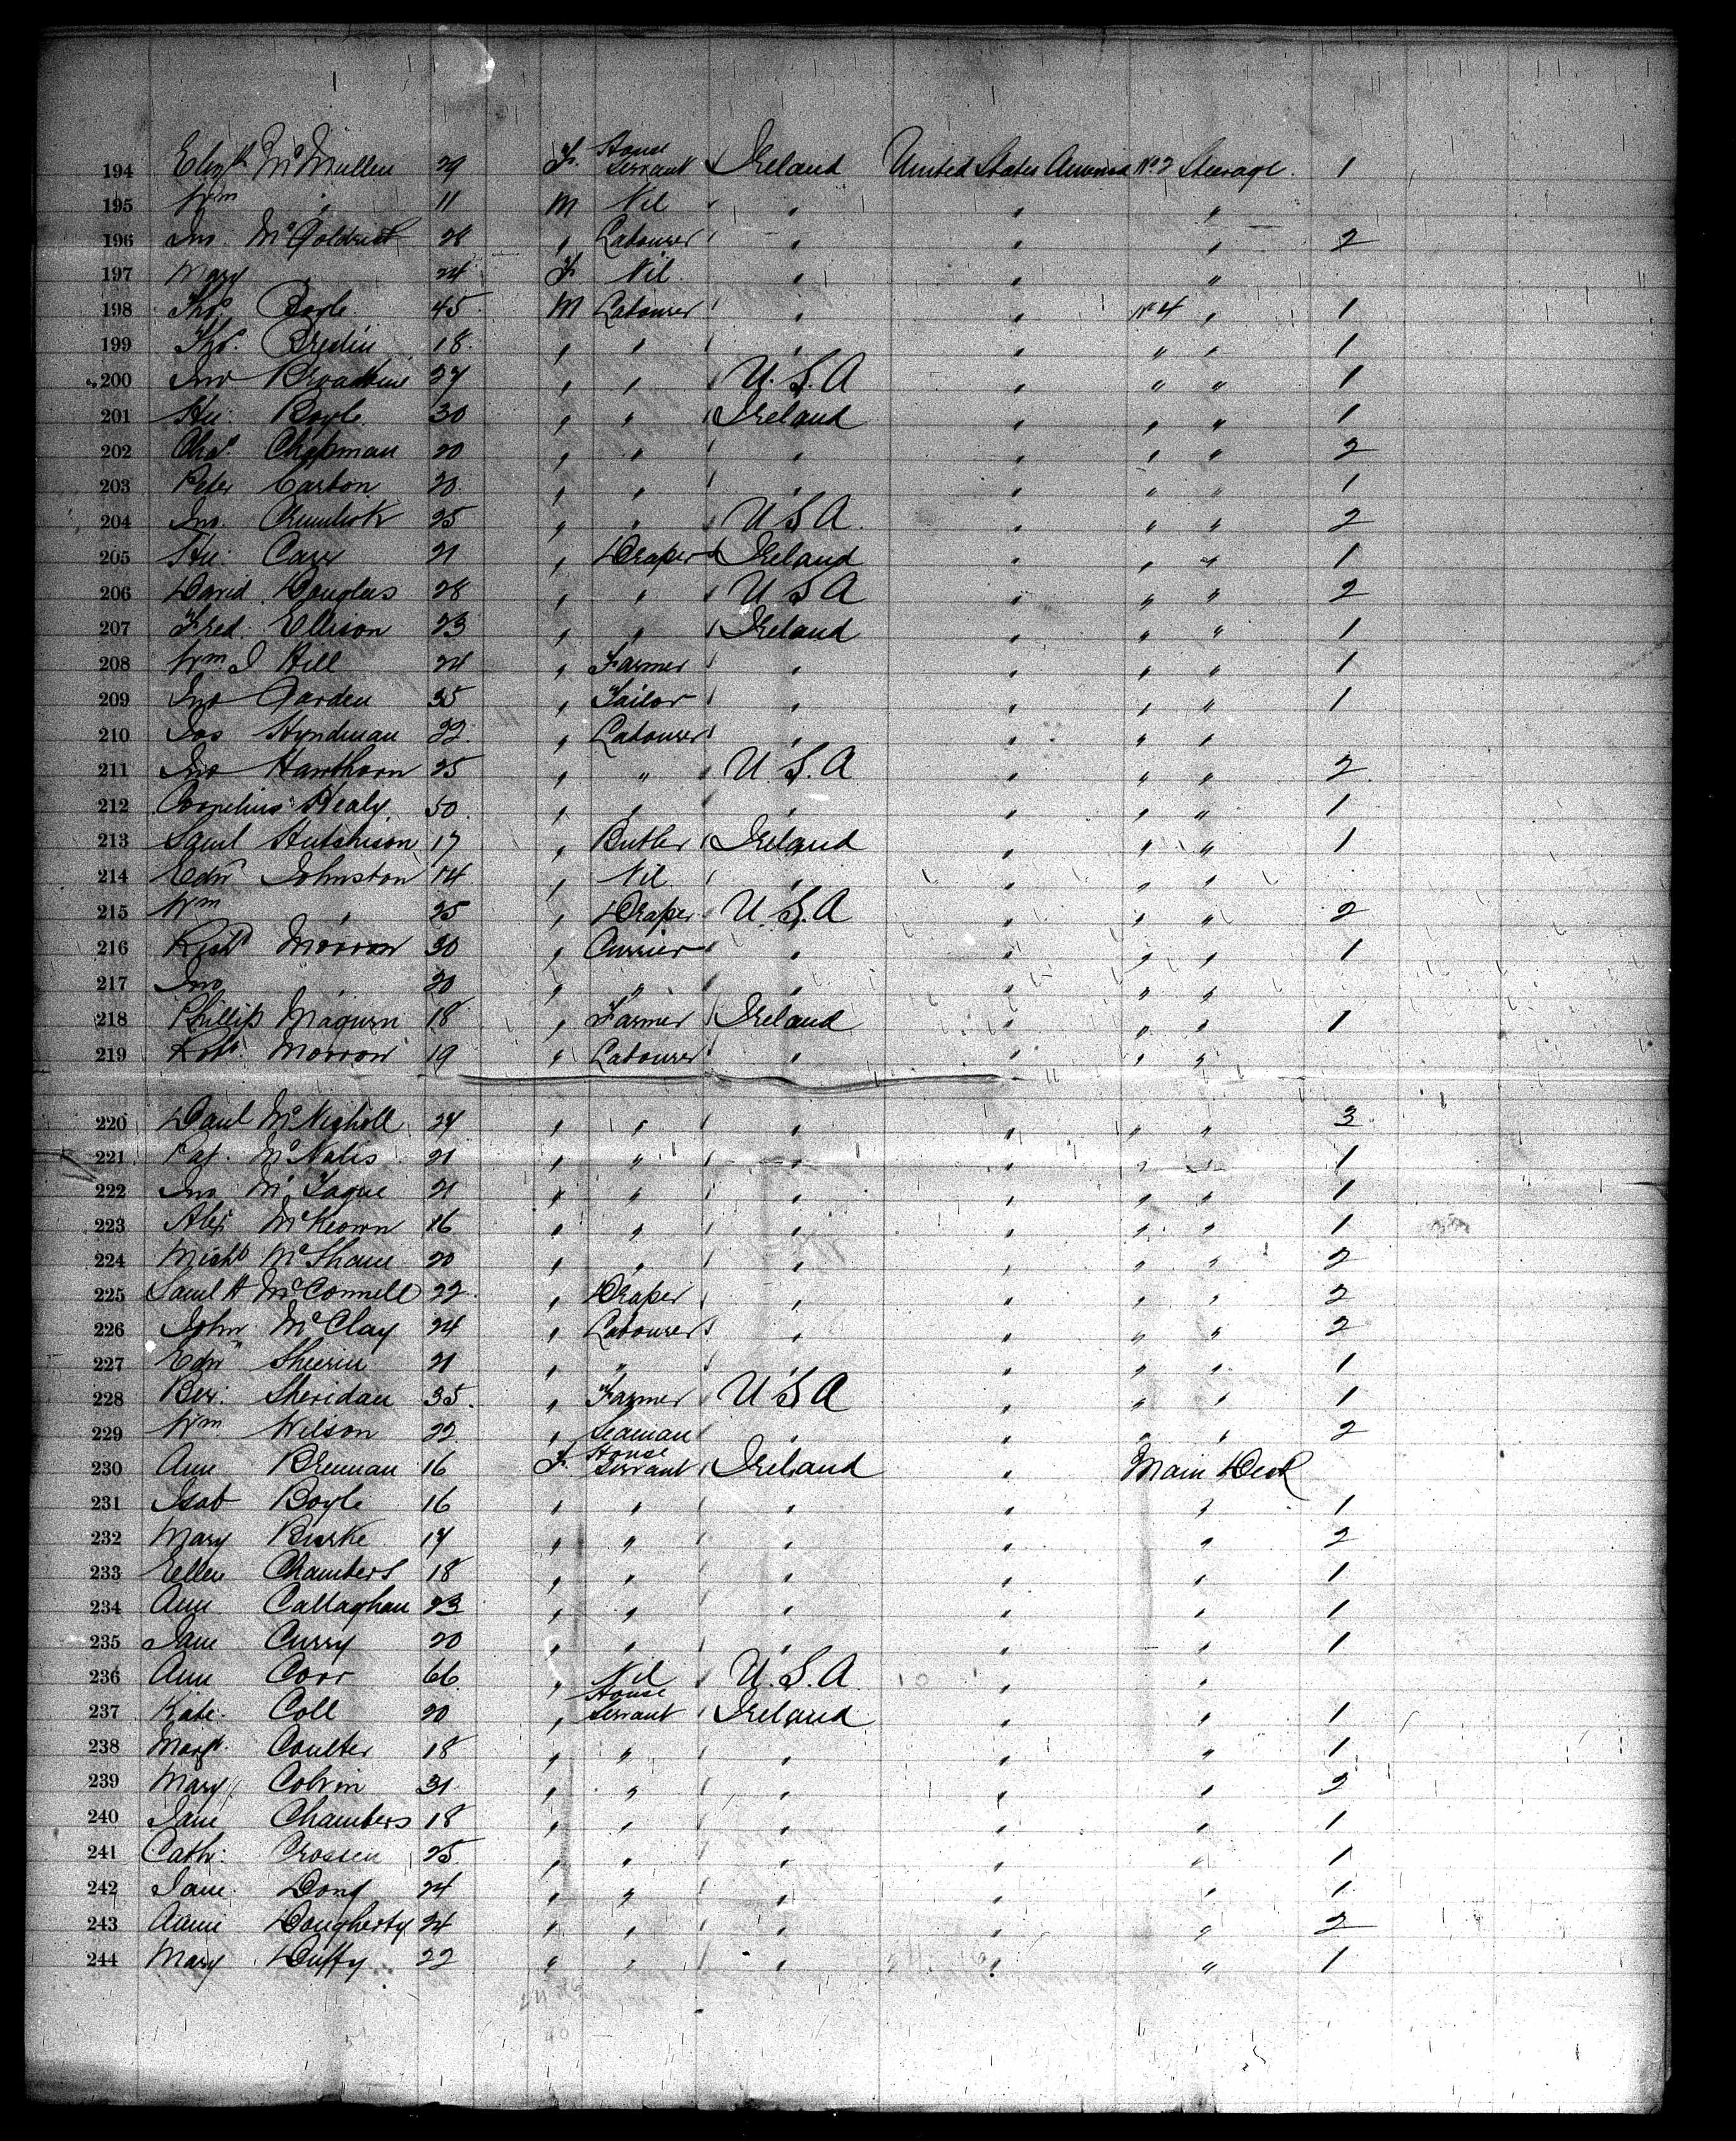 194 Elizth McMullen 29 F. House Servant Ireland United States America No 2 Steerage. 1
195 Wm " 11 M Nil " " " "
196 Jno. McGoldrick 28 " Labourer " " " 2
197 Mary " 24 F. Nil " " "
198 Thos. Boyle 45 M Labourer " " No 4 " 1
199 Thos. Bredin 18 " " " " " " 1
200 Jno 27 " " U.S.A " " " 1
201 Hu: Boyle 30 " " Ireland " " " 1
202 Chas. Chapman 20 " " " " " " 2
203 Peter Carbon 20 " " " " " " 1
204 Jno. 25 " " U S A " " " 2
205 Hu: Carr 21 " Draper Ireland " " " 1
206 David Douglas 28 " " U S A " " " 2
207 Fred. Ellison 23 " " Ireland " " " 1
208 Wm. J Hill 24 " Farmer " " " " 1
209 Jno Garden 35 " Tailor " " " " 1
210 Jos Hyndman 22 " Labourer " " " "
211 Jno Hawthorn 25 " " U.S.A " " " 2
212 Cornelius Healy 50 " " " " " " 1
213 Saml Hutchison 17 " Butler Ireland " " " 1
214 Edw Johnston 14 " Nil " " " "
215 Wm " 25 " Draper U.S.A " " " 2
216 Richd Morrow 30 " Currier " " " " 1
217 Jno " 20 " " " " " "
218 Phillip Magurn 18 " Farmer Ireland " " " 1
219 Robt. Morrow 19 " Labourer " " " "
220 Danl McNicholl 24 " " " " " " 3
221 Pat. 21 " " " " " " 1
222 Jno McTague 21 " " " " " " 1
223 Alex McKeown 16 " " " " " " 1
224 Michl McShane 20 " " " " " " 2
225 Saml H McConnell 22 " Draper " " " " 2
226 John McClay 24 " Labourer " " " " 2
227 Edw Sheerin 21 " " " " " " 1
228 Ber: Sheridan 35 " Farmer U S A " " " 1
229 Wm. Wilson 22 " Seaman " " " " 2
230 Ann Brennan 16 F. House Servant Ireland " Main Deck
231 Isab Boyle 16 " " " " " 1
232 Mary Burke 17 " " " " " 2
233 Ellen Chambers 18 " " " " " 1
234 Ann Callaghan 23 " " " " " 1
235 Jane Curry 20 " " " " " 1
236 Ann Corr 66 " Nil U.S.A " "
237 Kate Coll 20 " House Servant Ireland " " 1
238 Margt. Coulter 18 " " " " " 1
239 Mary Colvin 31 " " " " " 2
240 Jane Chambers 18 " " " " " 1
241 Cath: Crossen 25 " " " " " 1
242 Jane Dond 24 " " " " " 1
243 Annie Dougherty 24 " " " " " 2
244 Mary Duffy 22 " " " " " 1